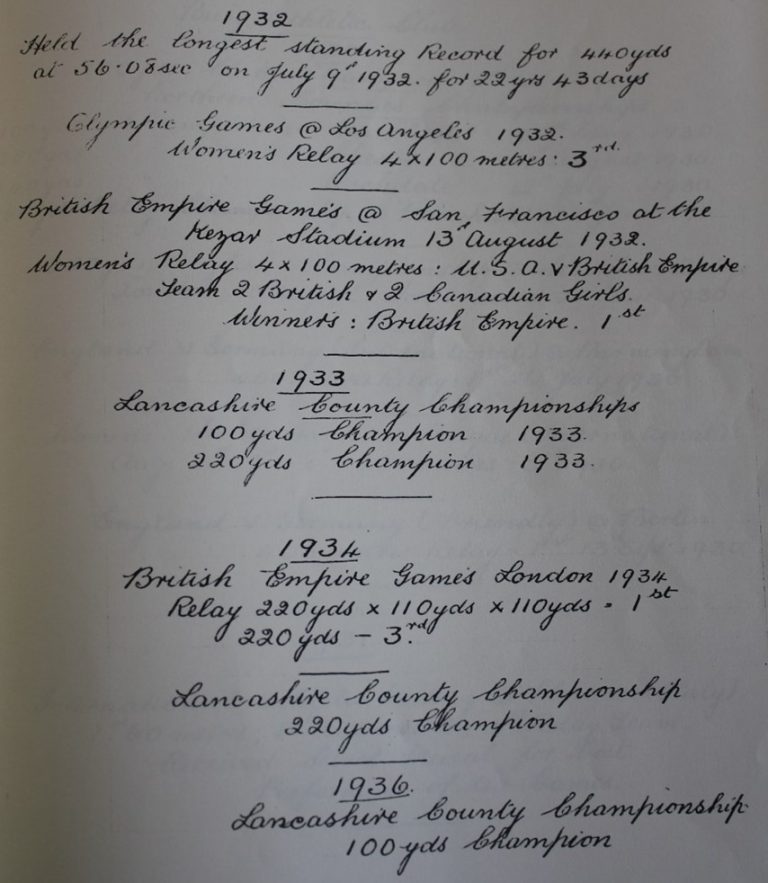 1932
Held the longest standing Record for 440yds
at 56.08sec on July 9th 1932. for 22yrs 43days
Olympic Games @ Los Angeles 1932.
Women's Relay 4x100 metres: 3rd.
British Empire Game's @ San Francisco at the
Kezar Stadium 13th August 1932.
Women's Relay 4x100 metres: U.S.A. v British Empire
Team 2 British & 2 Canadian Girls.
Winners: British Empire. 1st
1933
Lancashire County Championships
100yds Champion 1933.
220yds Champion 1933.
1934
British Empire Games London 1934
Relay 220yds x 110yds x 110yds - 1st
220yds - 3rd.
Lancashire County Championship
220yds Champion
1936.
Lancashire County Championship.
100yds Champion